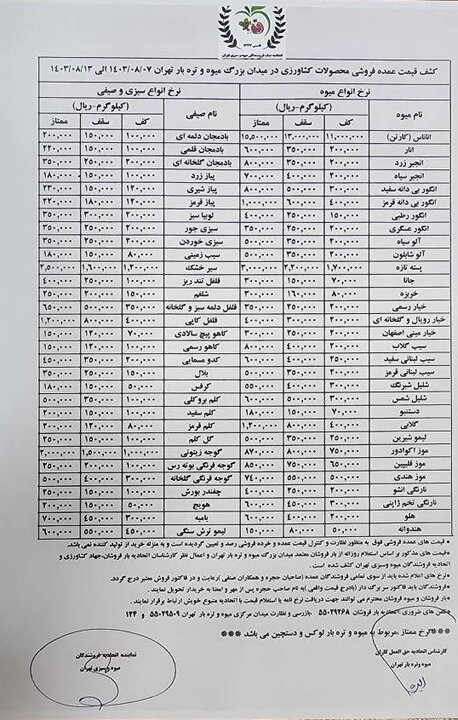 کشف قیمت عمده فروشی محصولات کشاورزی در میدان بزرگ میوه و تره بار تهران ۱۴۰۳/۰۸/۰۷ الی ۱۴۰۳/۰۸/۱۳
نرخ انواع میوه نرخ انواع سبزی و صیفی
نام میوه (کیلوگرم-ریال) نام صیفی (کیلوگرم-ریال)
کف سقف ممتاز کف سقف ممتاز
آناناس (کارتن) ۱۱,۰۰۰,۰۰۰ ۱۳,۰۰۰,۰۰۰ ۱۵,۵۰۰,۰۰۰ بادمجان دلمه ای ۱۰۰,۰۰۰ ۱۵۰,۰۰۰ ۲۰۰,۰۰۰
انار ۲۰۰,۰۰۰ ۳۵۰,۰۰۰ ۶۰۰,۰۰۰ بادمجان قلمی ۱۰۰,۰۰۰ ۱۵۰,۰۰۰ ۲۲۰,۰۰۰
انجیر زرد ۲۰۰,۰۰۰ ۳۵۰,۰۰۰ ۸۰۰,۰۰۰ بادمجان گلخانه ای ۲۰۰,۰۰۰ ۲۵۰,۰۰۰ ۳۵۰,۰۰۰
انجیر سیاه ۲۰۰,۰۰۰ ۴۰۰,۰۰۰ ۷۰۰,۰۰۰ پیاز زرد ۱۰۰,۰۰۰ ۱۵۰,۰۰۰ ۱۸۰,۰۰۰
انگور بی دانه سفید ۳۰۰,۰۰۰ ۵۰۰,۰۰۰ ۸۰۰,۰۰۰ پیاز شیری ۱۲۰,۰۰۰ ۱۵۰,۰۰۰ ۲۳۰,۰۰۰
انگور بی دانه قرمز ۴۰۰,۰۰۰ ۶۰۰,۰۰۰ ۱,۰۰۰,۰۰۰ پیاز قرمز ۱۲۰,۰۰۰ ۱۸۰,۰۰۰ ۲۲۰,۰۰۰
انگور رطبی ۱۵۰,۰۰۰ ۲۵۰,۰۰۰ ۴۰۰,۰۰۰ لوبیا سبز ۲۰۰,۰۰۰ ۳۰۰,۰۰۰ ۳۵۰,۰۰۰
انگور عسگری ۲۰۰,۰۰۰ ۲۵۰,۰۰۰ سبزی جور ۲۰۰,۰۰۰ ۲۵۰,۰۰۰ ۳۵۰,۰۰۰
آلو سیاه ۲۰۰,۰۰۰ ۳۵۰,۰۰۰ ۵۰۰,۰۰۰ سبزی خوردن ۲۰۰,۰۰۰ ۲۵۰,۰۰۰ ۳۵۰,۰۰۰
آلو شابلون ۲۰۰,۰۰۰ سیب زمینی ۸۰,۰۰۰ ۱۵۰,۰۰۰ ۱۸۰,۰۰۰
پسته تازه ۱,۷۰۰,۰۰۰ ۲,۲۰۰,۰۰۰ ۳,۰۰۰,۰۰۰ سیر خشک ۱,۲۰۰,۰۰۰ ۱,۶۰۰,۰۰۰ ۲,۵۰۰,۰۰۰
جانا ۷۰,۰۰۰ ۱۵۰,۰۰۰ ۳۰۰,۰۰۰ فلفل تند ریز ۱۰۰,۰۰۰ ۲۵۰,۰۰۰
خربزه ۸۰,۰۰۰ ۱۶۰,۰۰۰ ۳۰۰,۰۰۰ شلغم ۱۵۰,۰۰۰ ۲۰۰,۰۰۰ ۲۵۰,۰۰۰
خیار رسمی ۲۰۰,۰۰۰ ۲۵۰,۰۰۰ ۳۵۰,۰۰۰ فلفل دلمه سبز و گلخانه ۳۵۰,۰۰۰ ۵۰۰,۰۰۰ ۶۵۰,۰۰۰
خیار رویال و گلخانه ای ۲۰۰,۰۰۰ ۲۵۰,۰۰۰ ۴۰۰,۰۰۰ فلفل کاپی ۴۰۰,۰۰۰ ۸۰۰,۰۰۰ ۱,۲۰۰,۰۰۰
خیار مینی اصفهان ۲۰۰,۰۰۰ ۲۵۰,۰۰۰ کاهو پیچ سالادی ۷۰,۰۰۰ ۱۲۰,۰۰۰ ۱۵۰,۰۰۰
سیب گلاب کاهو رسمی ۱۰۰,۰۰۰ ۱۵۰,۰۰۰
سیب لبنانی سفید ۲۵۰,۰۰۰ ۴۰۰,۰۰۰ ۶۰۰,۰۰۰ کدو مسمایی ۲۰۰,۰۰۰ ۳۵۰,۰۰۰ ۴۵۰,۰۰۰
سیب لبنانی قرمز ۲۰۰,۰۰۰ ۳۵۰,۰۰۰ بلال
شلیل شبرنگ ۳۰۰,۰۰۰ ۴۰۰,۰۰۰ ۵۵۰,۰۰۰ کرفس ۵۰,۰۰۰ ۱۵۰,۰۰۰ ۱۸۰,۰۰۰
شلیل شمس ۳۰۰,۰۰۰ ۵۰۰,۰۰۰ ۶۰۰,۰۰۰ کلم بروکلی
دستنبو ۷۰,۰۰۰ ۱۵۰,۰۰۰ ۱۸۰,۰۰۰ کلم سفید
گلابی ۴۰۰,۰۰۰ ۸۰۰,۰۰۰ ۱,۲۰۰,۰۰۰ کلم قرمز ۸۰,۰۰۰ ۱۲۰,۰۰۰ ۲۰۰,۰۰۰
لیمو شیرین ۲۵۰,۰۰۰ ۳۵۰,۰۰۰ ۵۰۰,۰۰۰ گل کلم ۱۰۰,۰۰۰ ۱۵۰,۰۰۰
موز اکوادور ۷۵۰,۰۰۰ ۸۰۰,۰۰۰ ۸۷۰,۰۰۰ گوجه زیتونی ۱,۰۰۰,۰۰۰ ۱,۵۰۰,۰۰۰ ۲,۰۰۰,۰۰۰
موز فلیپین ۶۵۰,۰۰۰ ۷۵۰,۰۰۰ ۸۵۰,۰۰۰ گوجه فرنگی بوته رس ۱۰۰,۰۰۰ ۲۰۰,۰۰۰ ۲۵۰,۰۰۰
موز هندی ۵۰۰,۰۰۰ ۵۵۰,۰۰۰ ۷۴۰,۰۰۰ گوجه فرنگی گلخانه ۳۰۰,۰۰۰ ۴۰۰,۰۰۰ ۵۰۰,۰۰۰
نارنگی انشو ۲۰۰,۰۰۰ چغندر بورش ۱۰۰,۰۰۰ ۱۵۰,۰۰۰
نارنگی تخم ژاپنی ۲۰۰,۰۰۰ هویج ۱۵۰,۰۰۰ ۲۰۰,۰۰۰
هلو ۲۰۰,۰۰۰ بامیه ۳۰۰,۰۰۰ ۴۰۰,۰۰۰ ۷۰۰,۰۰۰
هندوانه ۵۰,۰۰۰ ۸۰,۰۰۰ ۱۵۰,۰۰۰ لیمو ترش سنگی ۴۵۰,۰۰۰ ۵۵۰,۰۰۰ ۶۰۰,۰۰۰
* قیمت های عمده فروشی فوق به منظور نظارت و کنترل قیمت عمده و خرده فروشی رصد و تعیین گردیده است و به منزله خرید از تولید کننده نمی باشد.
* قیمت های مذکور بر اساس استعلام روزانه از بار فروشان معتمد میدان بزرگ میوه و تره بار تهران و اعمال نظر کارشناسان اتحادیه بار فروشان،جهاد کشاورزی و اتحادیه فروشندگان میوه و سبزی تهران کشف شده است.
* نرخ های اعلام شده باید از سوی تمامی فروشندگان عمده (صاحبین حجره و همکاران صنفی )رعایت و در فاکتور فروش معتبر درج گردد.
* بارفروشان باید فاکتور سر برگ دار (بادرج قیمت واقعی )به نام صاحب حجره پس از مهر و امضا به خریدار تحویل نمایند.
* بارفروشان و میوه فروشان محترم می توانند جهت دریافت نرخ نامه یا استعلام قیمت با اتحادیه متبوع خویش ارتباط برقرار نمایند.
*تلفن های ضروری اتحادیه بار فروشان ۵۵۰۲۹۲۶۸ -بازرسی و نظارت میدان مرکزی میوه و تره بار تهران ۵۵۰۲۹۵۰۹ و ۱۲۴
***نرخ ممتاز ،مربوط به میوه و تره بار لوکس و دستچین می باشد***
کارشناس اتحادیه حق العمل کاران
میوه وتره بار تهران
نماینده اتحادیه فروشندگان
میوه و سبزی تهران